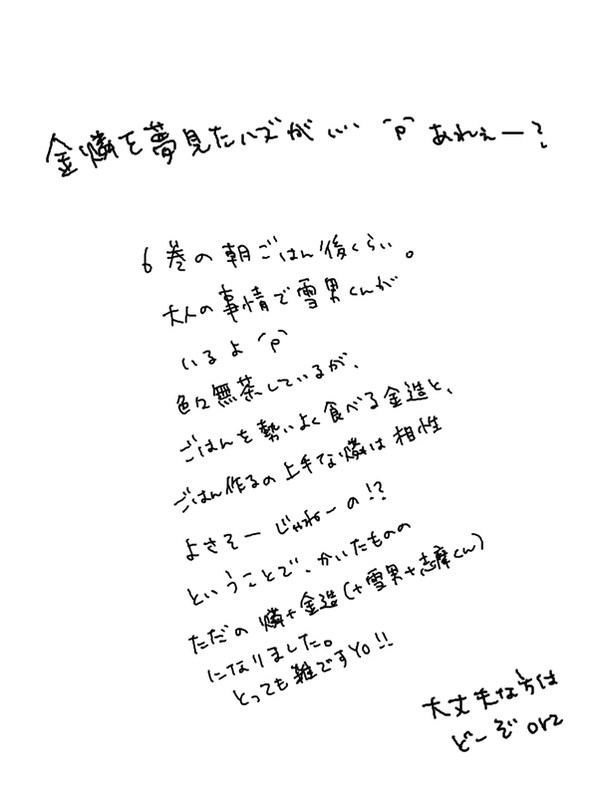 金燐を夢見たハズが… ^p^ あれぇー?
6巻の朝ごはん後くらい。
大人の事情で雪男くんが
いるよ^p^
色々無茶しているが、
ごはんを勢いよく食べる金造と、
ごはん作るの上手な燐は相性
よさそーじゃねーの!?
ということで、かいたものの
ただの燐+金造(+雪男+志摩くん)
になりました。
とっても雑ですYO!!
大丈夫な方は
どーぞorz